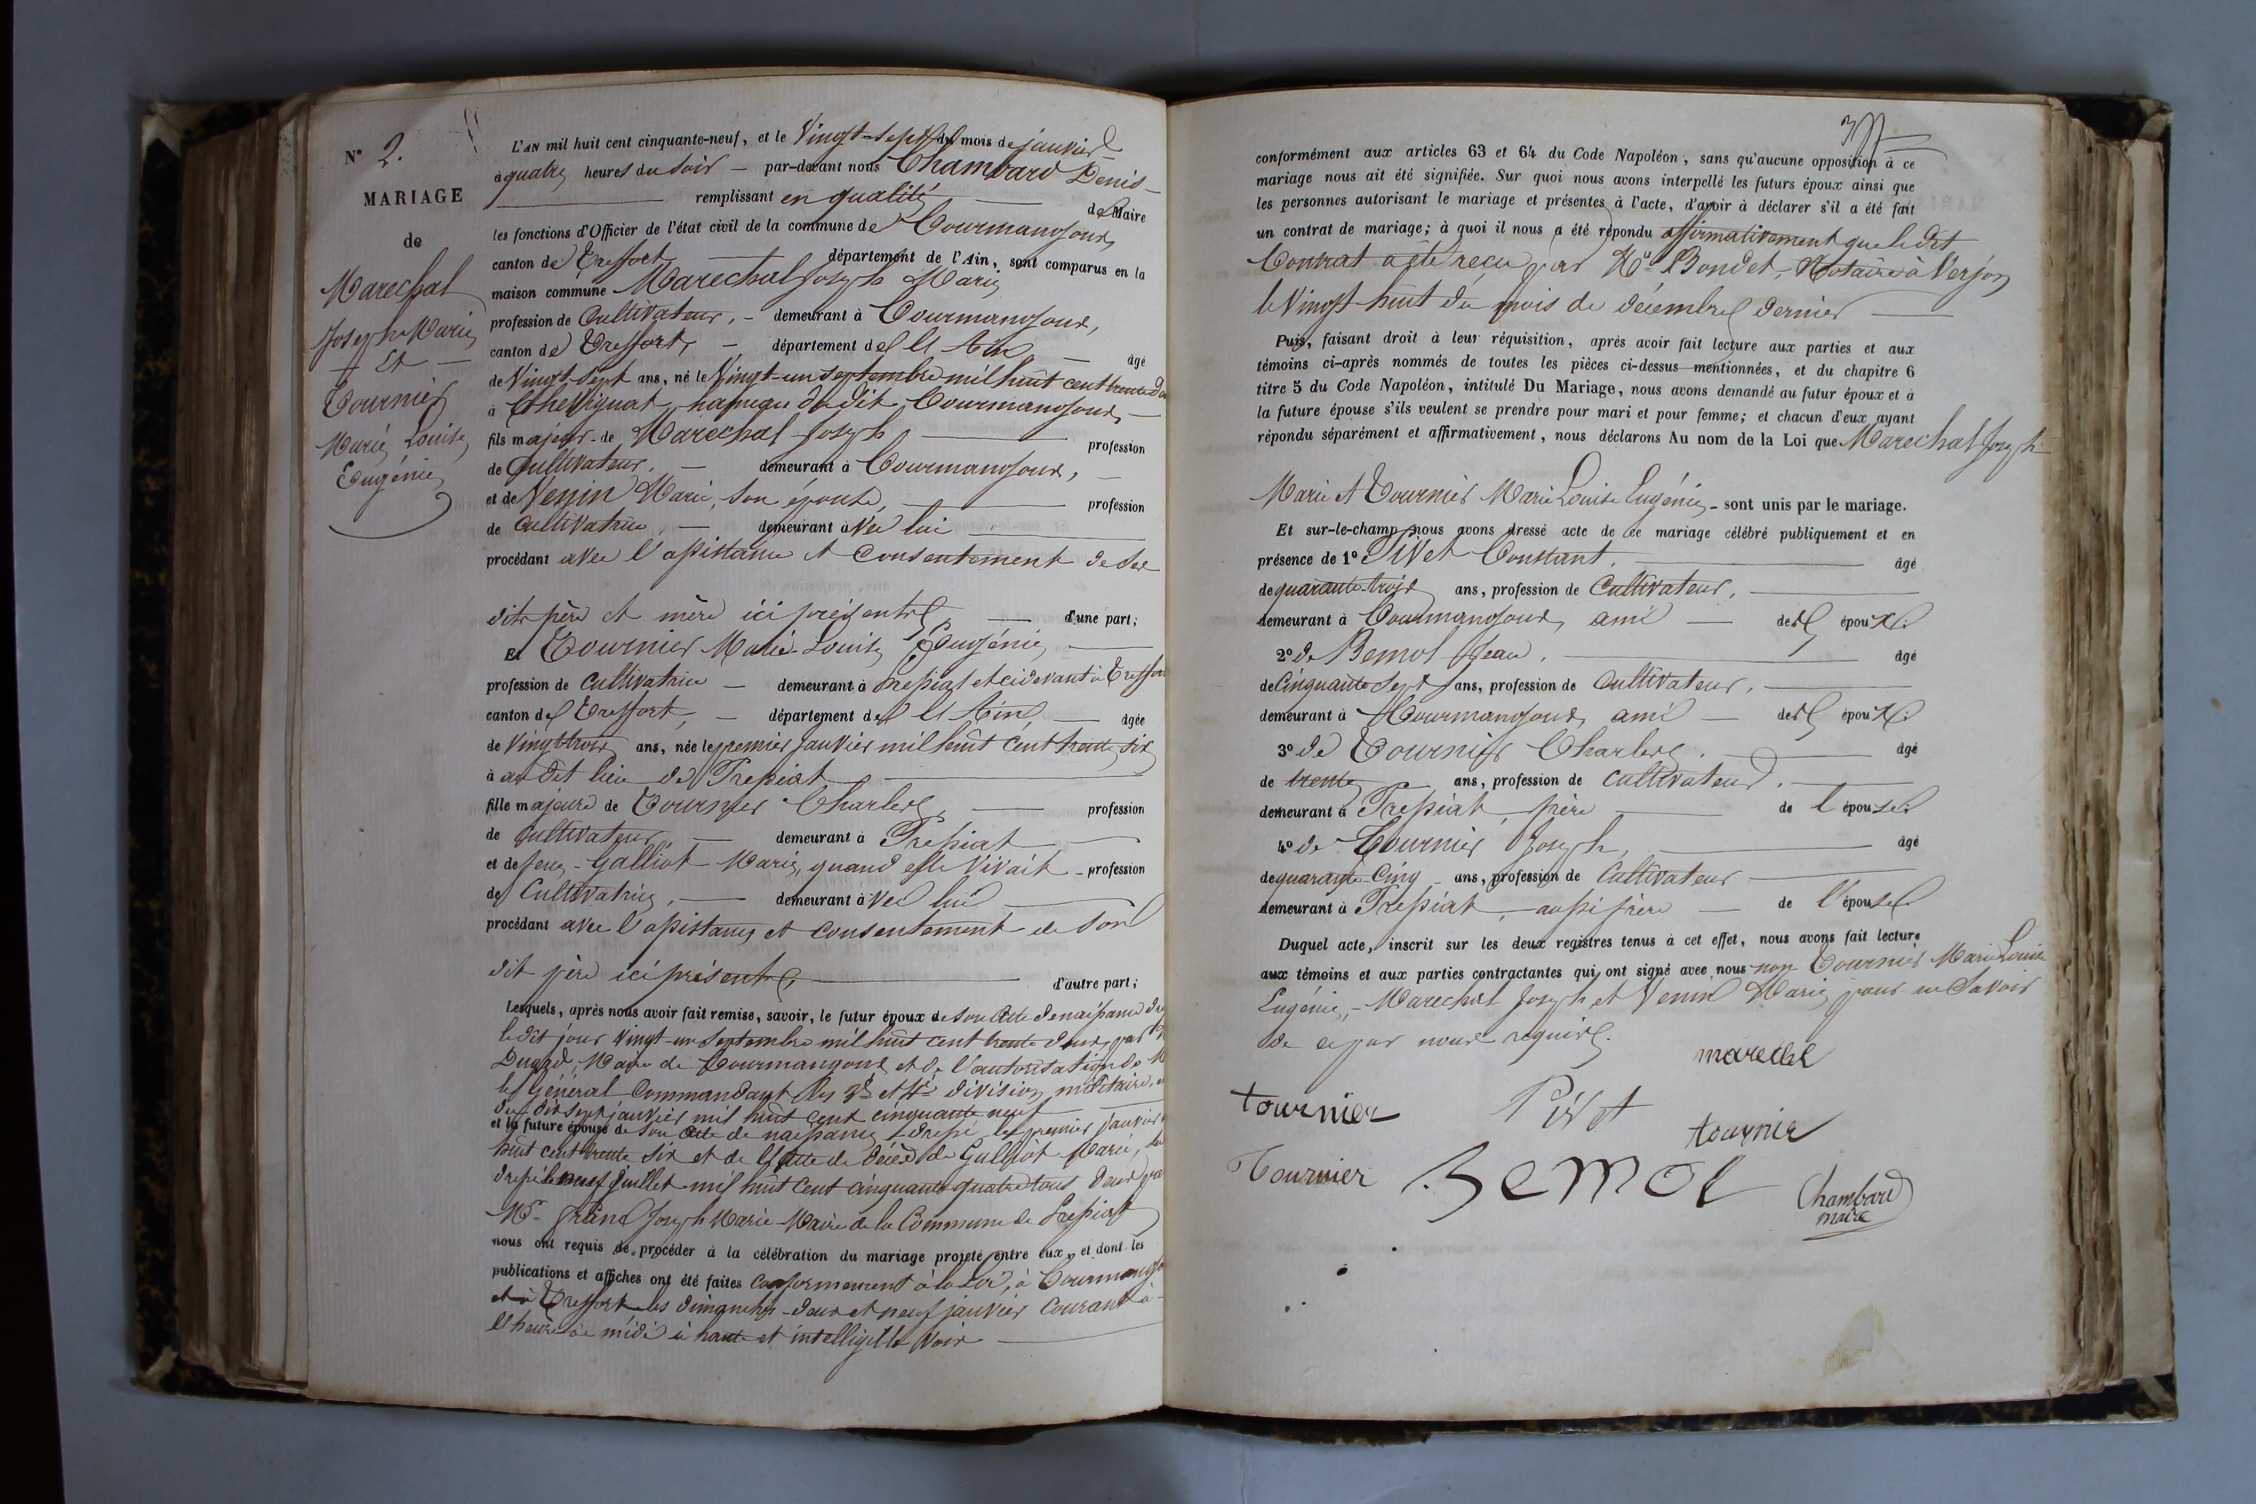 N° 2.
MARIAGE
de
Marechal
Joseph Marie
Et
Tournier
Marie Louise
Eugénie
L'AN mil huit cent cinquante-neuf, et le Vingt-sept du mois de janvier
à quatre heures du soir — par-devant nous Chambard Denis
remplissant en qualité de Maire
les fonctions d'Officier de l'état civil de la commune de Courmangoux
canton de Treffort département de l'Ain, sont comparus en la
maison commune Marechal Joseph Marie
profession de Cultivateur, — demeurant à Courmangoux,
canton de Treffort, — département de l'Ain — âgé
de Vingt-Sept ans, né le Vingt-un septembre mil huit cent trente
à Chevignat hameau du dit Courmangoux,
fils majeur de Marechal Joseph profession
de Cultivateur, — demeurant à Courmangoux,
et de Venin Marie, son épouse, profession
de Cultivatrice, — demeurant avec lui
procédant avec l'assistance et consentement de ses
dits père et mère ici présents — d'une part;
Et Tournier Marie-Louise Eugénie
profession de Cultivatrice — demeurant à Pressiat et cidevant à Treffort
canton de Treffort, — département de l'Ain — âgée
de Vingt trois ans, née le premier janvier mil huit cent trente six
à au dit lieu de Pressiat
fille majeure de Tournier Charles, profession
de Cultivateur, — demeurant à Pressiat
et de feue Galliot Marie, quand elle vivait — profession
de Cultivatrice, — demeurant avec lui
procédant avec l'assistance et consentement de son
dit père ici présent, d'autre part;
Lesquels, après nous avoir fait remise, savoir, le futur époux de son acte de naissance
le dit jour vingt-un septembre mil huit cent trente deux, par
Maire de Courmangoux et de l'autorisation de
le Général Commandant les et division militaire,
du dix sept janvier mil huit cent cinquante neuf
et la future épouse de son acte de naissance dressé le premier janvier
huit cent trente six et de l'acte de décès de Galliot Marie,
dressé le neuf juillet mil huit cent cinquante quatre tous deux par
Mr Joseph Marie Maire de la Commune de Pressiat
nous ont requis de procéder à la célébration du mariage projeté entre eux, et dont les
publications et affiches ont été faites conformément à la loi, à Courmangoux
et à Treffort les dimanches deux et neuf janvier courant à
l'heure de midi à haute et intelligible voix
conformément aux articles 63 et 64 du Code Napoléon, sans qu'aucune opposition à ce
mariage nous ait été signifiée. Sur quoi nous avons interpellé les futurs époux ainsi que
les personnes autorisant le mariage et présentes à l'acte, d'avoir à déclarer s'il a été fait
un contrat de mariage; à quoi il nous a été répondu affirmativement que le dit
Contrat a été reçu par Me Bondet, Notaire à Verjon
le Vingt-huit du mois de décembre dernier
Puis, faisant droit à leur réquisition, après avoir fait lecture aux parties et aux
témoins ci-après nommés de toutes les pièces ci-dessus mentionnées, et du chapitre 6
titre 5 du Code Napoléon, intitulé Du Mariage, nous avons demandé au futur époux et à
la future épouse s'ils veulent se prendre pour mari et pour femme; et chacun d'eux ayant
répondu séparément et affirmativement, nous déclarons Au nom de la Loi que Marechal Joseph
Marie et Tournier Marie Louise Eugénie - sont unis par le mariage.
Et sur-le-champ nous avons dressé acte de ce mariage célébré publiquement et en
présence de 1° Pivet Constant, âgé
de quarante-trois ans, profession de Cultivateur,
demeurant à Courmangoux ami — des époux.
2° de Bemol Jean, âgé
de Cinquante sept ans, profession de Cultivateur,
demeurant à Courmangoux ami — des époux.
3° de Tournier Charles, âgé
de trente ans, profession de Cultivateur,
demeurant à Pressiat, frère de l'épouse.
4° de Tournier Joseph, âgé
de quarante-Cinq ans, profession de Cultivateur
demeurant à Pressiat, aussi frère — de l'épouse
Duquel acte, inscrit sur les deux registres tenus à cet effet, nous avons fait lecture
aux témoins et aux parties contractantes qui ont signé avec nous non Tournier Marie Louise
Eugénie, Marechal Joseph et Venin Marie pour ne savoir
de ce par nous requis.
marechal
tournier
Pivet
tournier
Tournier
Bemol
Chambard
maire